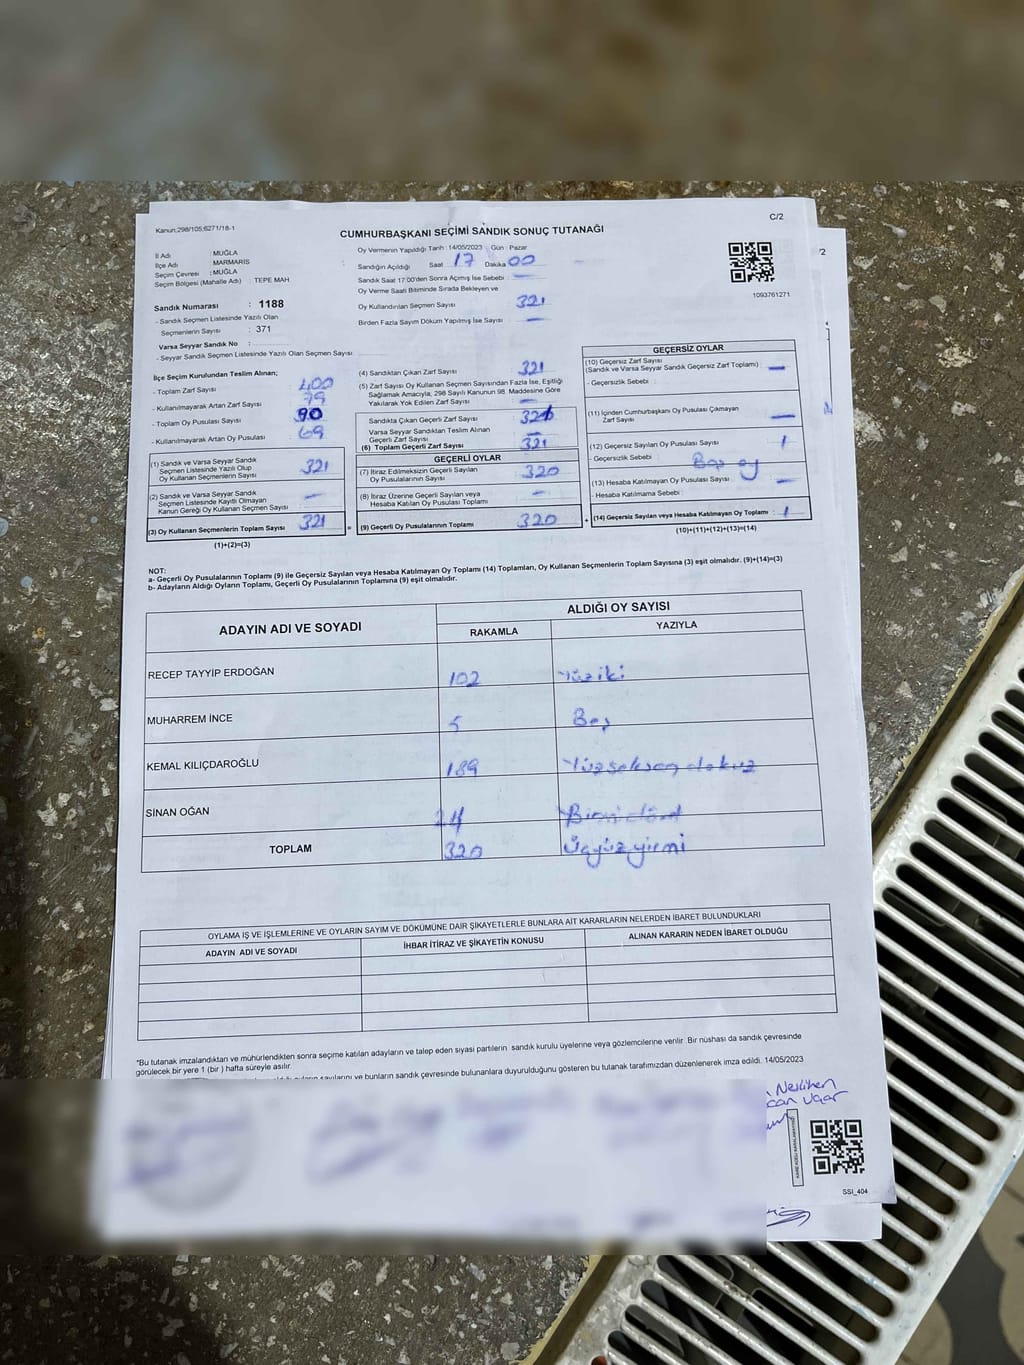 C/2
Kanun:298/105;6271/18-1
CUMHURBAŞKANI SEÇİMİ SANDIK SONUÇ TUTANAĞI
İl Adı : MUĞLA
İlçe Adı : MARMARİS
Seçim Çevresi : MUĞLA
Seçim Bölgesi (Mahalle Adı) : TEPE MAH.
Sandık Numarası : 1188
- Sandık Seçmen Listesinde Yazılı Olan
Seçmenlerin Sayısı : 371
Varsa Seyyar Sandık No :
- Seyyar Sandık Seçmen Listesinde Yazılı Olan Seçmen Sayısı
Oy Vermenin Yapıldığı Tarih : 14/05/2023 Gün : Pazar
Sandığın Açıldığı Saat 17 Dakika 00
Sandık Saat 17:00'den Sonra Açılmış İse Sebebi : —
Oy Verme Saati Bitiminde Sırada Bekleyen ve
Oy Kullandırılan Seçmen Sayısı 321
Birden Fazla Sayım Döküm Yapılmış İse Sayısı : —
1093761271
İlçe Seçim Kurulundan Teslim Alınan;
- Toplam Zarf Sayısı : 400
- Kullanılmayarak Artan Zarf Sayısı : 79
- Toplam Oy Pusulası Sayısı
- Kullanılmayarak Artan Oy Pusulası : 69
(1) Sandık ve Varsa Seyyar Sandık
Seçmen Listesinde Yazılı Olup
Oy Kullanan Seçmenlerin Sayısı 321
(2) Sandık ve Varsa Seyyar Sandık
Seçmen Listesinde Kayıtlı Olmayan
Kanun Gereği Oy Kullanan Seçmen Sayısı —
(3) Oy Kullanan Seçmenlerin Toplam Sayısı 321
(1)+(2)=(3)
=
(4) Sandıktan Çıkan Zarf Sayısı 321
(5) Zarf Sayısı Oy Kullanan Seçmen Sayısından Fazla İse, Eşitliği
Sağlamak Amacıyla; 298 Sayılı Kanunun 98. Maddesine Göre
Yakılarak Yok Edilen Zarf Sayısı —
Sandıkta Çıkan Geçerli Zarf Sayısı
Varsa Seyyar Sandıktan Teslim Alınan
Geçerli Zarf Sayısı —
(6) Toplam Geçerli Zarf Sayısı 321
GEÇERLİ OYLAR
(7) İtiraz Edilmeksizin Geçerli Sayılan
Oy Pusulasının Sayısı 320
(8) İtiraz Üzerine Geçerli Sayılan veya
Hesaba Katılan Oy Pusulası Toplamı —
(9) Geçerli Oy Pusulalarının Toplamı 320
+
GEÇERSİZ OYLAR
(10) Geçersiz Zarf Sayısı
(Sandık ve Varsa Seyyar Sandık Geçersiz Zarf Toplamı) —
- Geçersizlik Sebebi :
(11) İçinden Cumhurbaşkanı Oy Pusulası Çıkmayan
Zarf Sayısı —
(12) Geçersiz Sayılan Oy Pusulası Sayısı 1
- Geçersizlik Sebebi : Boş oy
(13) Hesaba Katılmayan Oy Pusulası Sayısı —
- Hesaba Katılmama Sebebi :
(14) Geçersiz Sayılan veya Hesaba Katılmayan Oy Toplamı : 1
(10)+(11)+(12)+(13)=(14)
NOT:
a- Geçerli Oy Pusulalarının Toplamı (9) ile Geçersiz Sayılan veya Hesaba Katılmayan Oy Toplamı (14) Toplamları, Oy Kullanan Seçmenlerin Toplam Sayısına (3) eşit olmalıdır. (9)+(14)=(3)
b- Adayların Aldığı Oyların Toplamı, Geçerli Oy Pusulalarının Toplamına (9) eşit olmalıdır.
ADAYIN ADI VE SOYADI
ALDIĞI OY SAYISI
RAKAMLA YAZIYLA
RECEP TAYYİP ERDOĞAN 102 Yüziki
MUHARREM İNCE 5 Beş
KEMAL KILIÇDAROĞLU 189 Yüzseksen dokuz
SİNAN OĞAN 24
TOPLAM 320 Üçyüzyirmi
OYLAMA İŞ VE İŞLEMLERİNE VE OYLARIN SAYIM VE DÖKÜMÜNE DAİR ŞİKAYETLERLE BUNLARA AİT KARARLARIN NELERDEN İBARET BULUNDUKLARI
ADAYIN ADI VE SOYADI İHBAR İTİRAZ VE ŞİKAYETİN KONUSU ALINAN KARARIN NEDEN İBARET OLDUĞU
"Bu tutanak imzalandıktan ve mühürlendikten sonra seçime katılan adayların ve talep eden siyasi partilerin sandık kurulu üyelerine veya gözlemcilerine verilir. Bir nüshası da sandık çevresinde
görülecek bir yere 1 (bir ) hafta süreyle asılır.
sayılarını ve bunların sandık çevresinde bulunanlara duyurulduğunu gösteren bu tutanak tarafımızdan düzenlenerek imza edildi. 14/05/2023
Neslihan
can Uçar
SSI_404